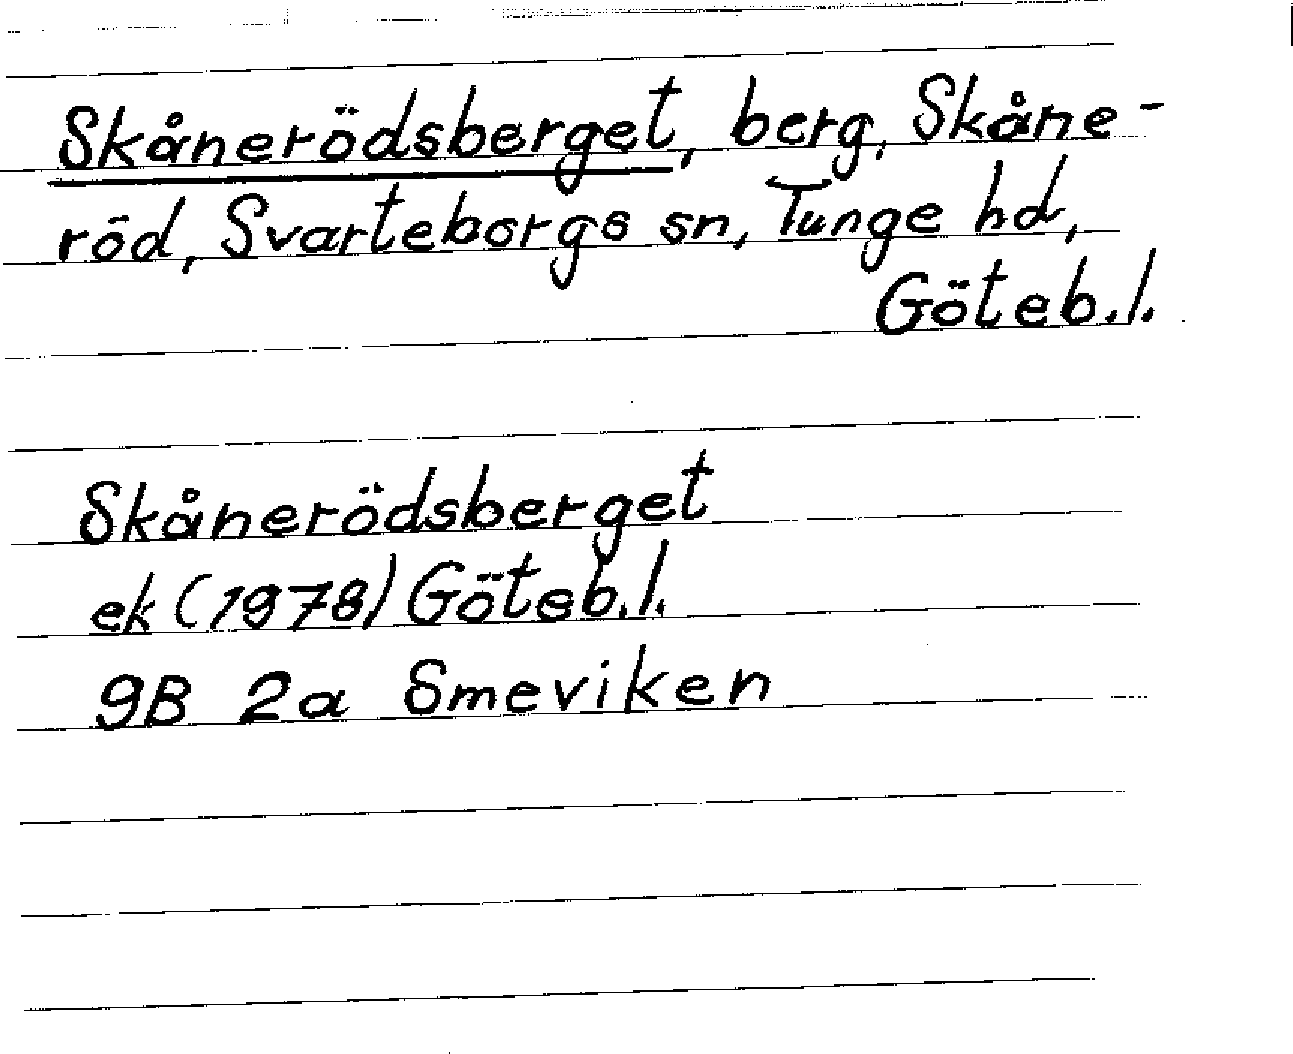 Skånerödsberget, berg, Skåne-
röd, Svarteborgs sn, Tunge hd,
Göteb.l.
Skånerödsberget
ek (1978) Göteb.l.
9B 2a Smeviken